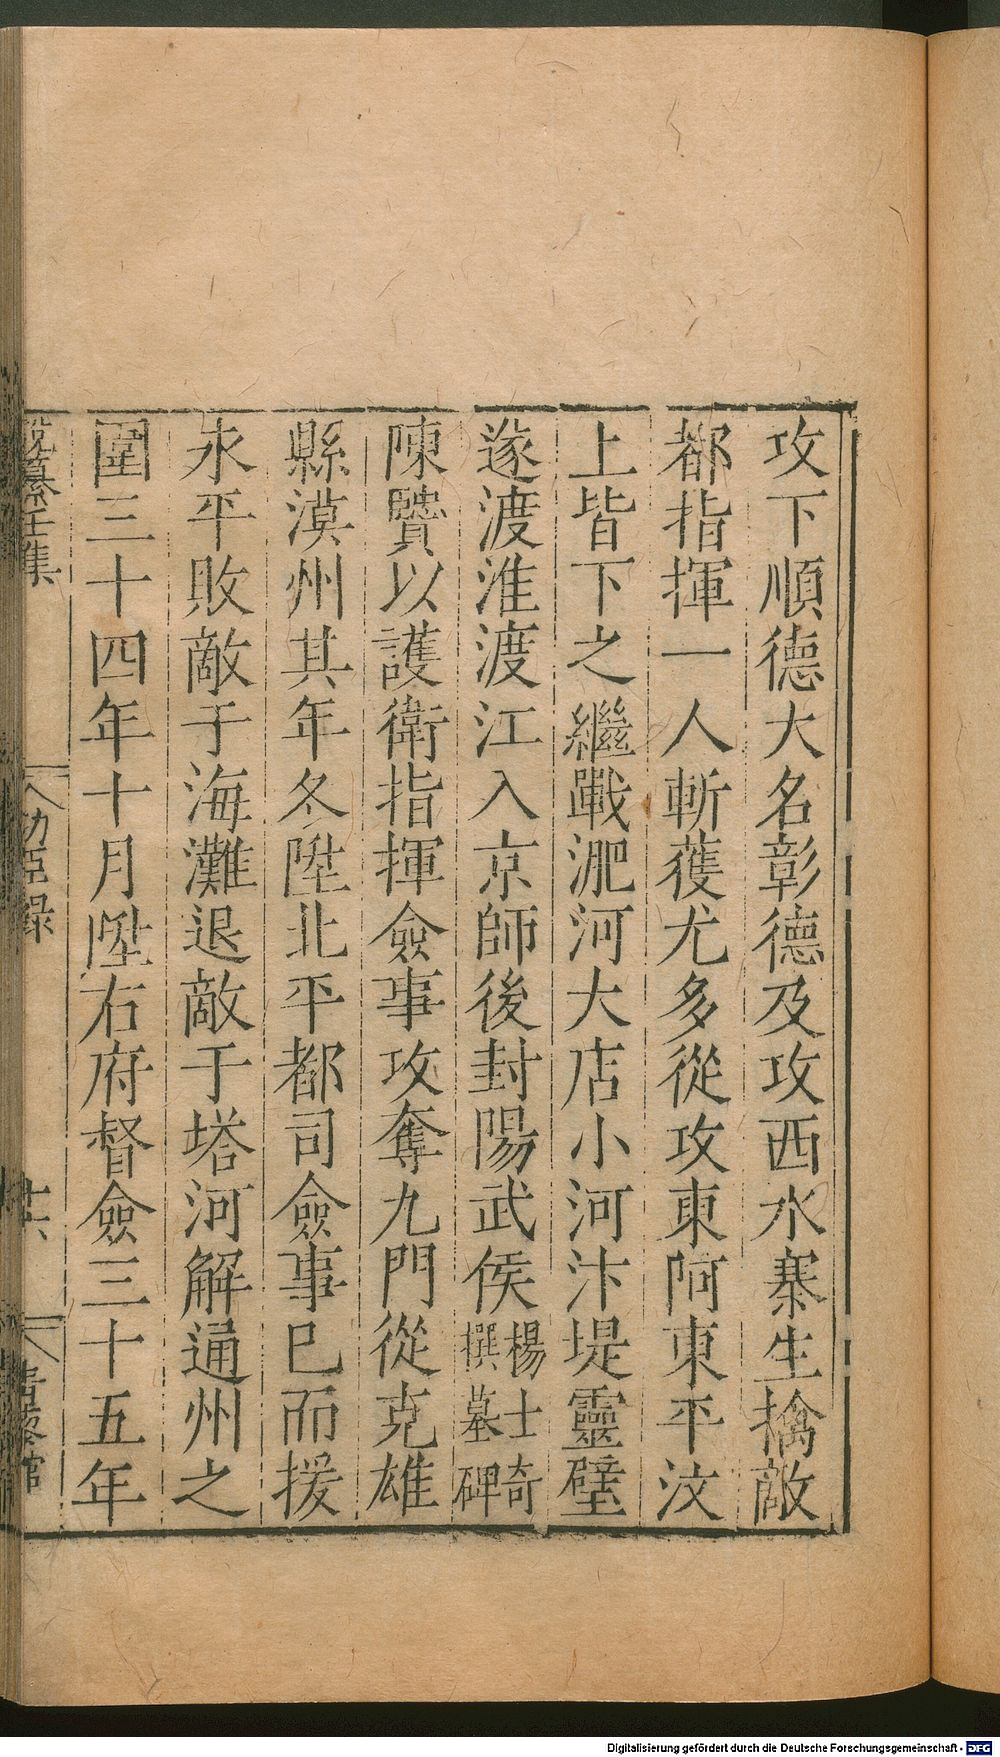 攻下順德大名彰德及攻西水寨生擒敵
都指揮一人斬蒦尤多從攻東阿東平汶
上皆下之繼戰淝河大店小河汴堤靈壁
遂渡淮渡江入京師後封陽武侯楊士奇
撰墓碑
陳贒以護衛指揮僉事攻奪九門從克雄
縣漠州其年冬陞北平都司僉事已而援
永平敗敵于海灘退敵于塔河解通州之
圍三十四年十月陞右府督僉三十五年
纂 集
功臣錄
十六
館
Digitalisierung gefördert durch die Deutsche Forschungsgemeinschaft - DFG